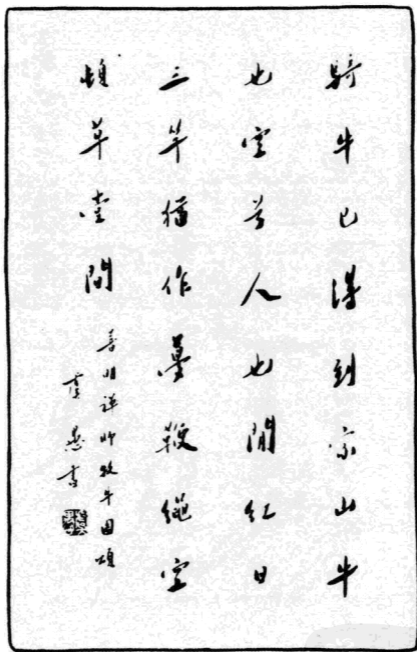 騎牛已得到家山牛
也空兮人也閒紅日
三竿猶作夢鞭繩空
頓草堂間
普明禪師牧牛圖頌
虞愚書